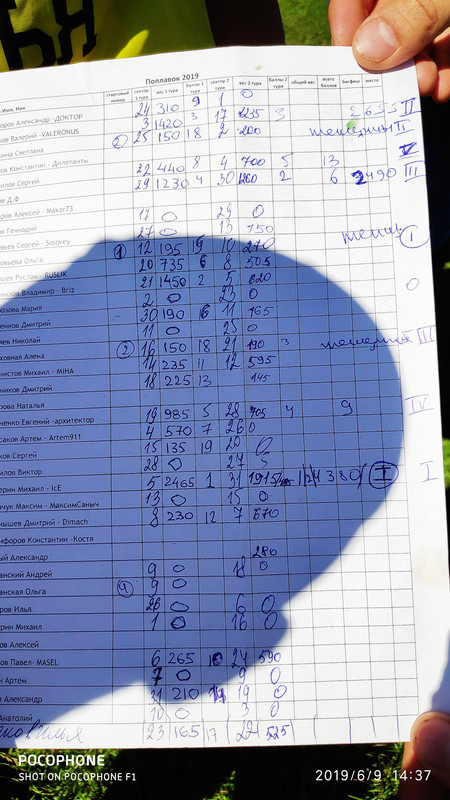 Поплавок 2019
стартовый номер сектор 1 тура вес 1 тура баллы 1 тура сектор 2 тура вес 2 тура баллы 2 тура общий вес всего баллов бигфиш место
Имя, Ник 24 310 9 1 0
оров Александр -ДОКТОР 3 1420 3 17 1235 3 2655 II
ров Валерий -VALERONUS 25 150 18 2 200 II
рина Светлана
ов Константин - Дилетанты 22 440 8 4 700 5 13 V
илов Сергей 29 1230 4 30 1260 2 6 2490 III
ов Д.Ф
оров Алексей - Makar73 17 0 29 0
ов Геннадий 27 0 13 750
овьев Сергей - Solovey 1 12 195 15 10 270 I
овьева Ольга 20 735 6 8 505
шев Руслан - RUSLIK 21 1450 2 5 620
илов Владимир - Briz 2 0 23 0
розова Мария 30 190 16 11 165
енков Дмитрий 11 0 25 0
яев Николай 2 16 150 18 21 190 3 III
ховная Алена 14 235 11 12 595
нистов Михаил - MIHA 18 225 13 145
ников Дмитрий
рова Наталья
ченко Евгений -архитектор 19 985 5 28 705 4 9 IV
саков Артем - Artem911 4 570 7 26 0
ков Сергей 15 135 19 20 0
илов Виктор 28 0 27
ерин Михаил - IcE 5 2465 1 31 1915 1 4380 I I
чук Максим - МаксимСаныч 13 0 15 0
нышев Дмитрий - Dimach 8 230 12 7 670
ифоров Константин -Костя
ый Александр 280
анский Андрей 9 0 18 0
анская Ольга 9 0
ров Илья 26 0 6 0
рин Михаил 1 0 16 0
ов Алексей
ов Павел- MASEL 6 265 10 24 590
н Артем 7 0 9 0
в Александр 31 210 14 19 0
Анатолий 10 0 3 0
23 165 17 22 525
POCOPHONE
SHOT ON POCOPHONE F1
2019/6/9 14:37